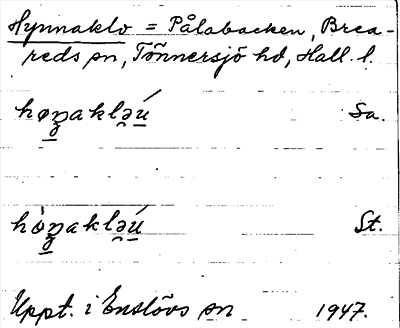 Hynnaklo = Pålabacken, Brea-
reds sn, Tönnersjö hd, Hall. l.
høn̠aklə̯ú̠ Sa.
hὸn̠aklə̯ú̠ St.
Uppt. i Enslövs sn 1947.